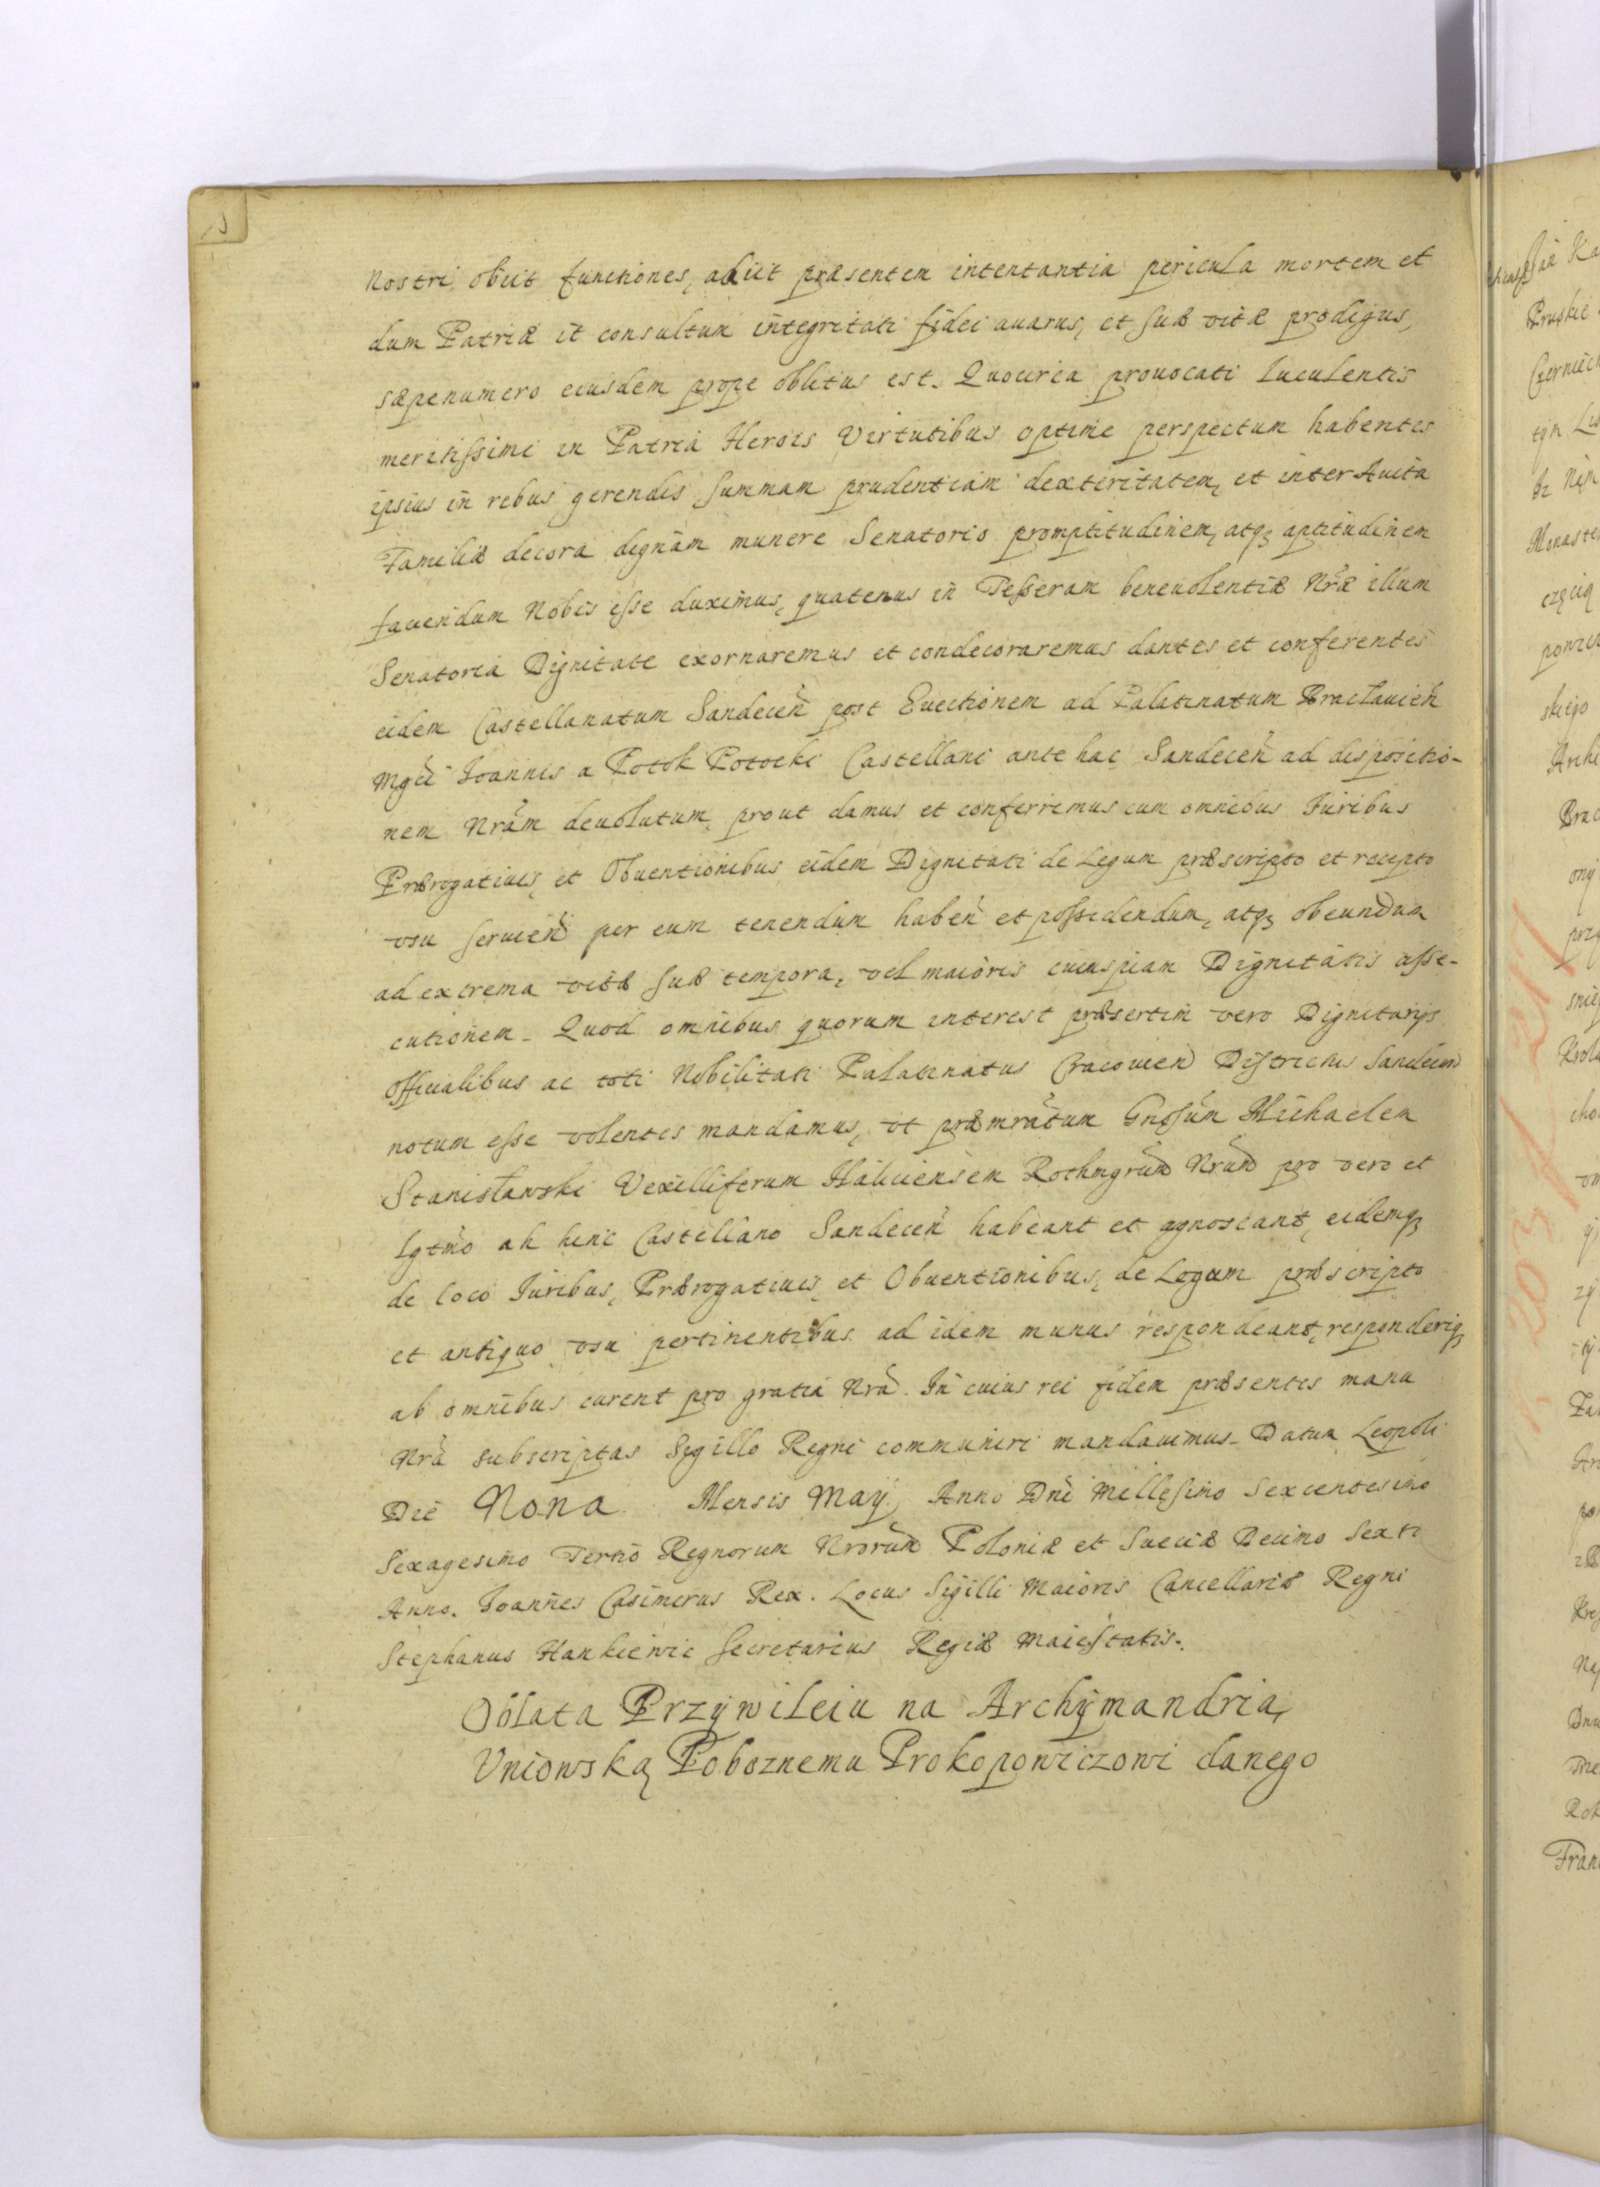 Nostri obiit functiones, adiit præsentem intentantia pericula mortem et
dum Patriæ it consultum integritati fidei auarus, et suæ vitæ prodigus,
sæpenumero eiusdem prope oblitus est. Quocirca prouocati luculentis
meritissimi in Patria Herois Virtutibus optime perspectum habentes
ipsius in rebus gerendis summam prudentiam dexteritatem, et inter Auita
Familiæ decora dignam munere Senatoris promptitudinem, atq3 aptitudinem
faciendum Nobis esse duximus, quatenus in Tesseram beneuolentiæ Nræ illum
Senatoria Dignitate exornaremus et condecoraremus dantes et conferentes
eidem Castellanatum Sandecen̄ post Euectionem ad Palatinatum Bracłauien̄
Mgci Ioannis a Potok Potocki Castellani ante hac Sandecen̄ ad dispositio-
nem Nrãm deuolutum, prout damus et conferrimus cum omnibus Iuribus
Prærogatiuis, et Obuentionibus eidem Dignitati de Legum præscripto et recepto
vsu seruien̄ per eum tenendum haben̄ et possidendum, atq3 obeundum
ad extrema vitæ suæ tempora, vel maioris cuiuspiam Dignitatis asse-
cutionem. Quod omnibus quorum interest præsertim vero Dignitarijs
Officialibus ac toti Nobilitati Palatinatus Cracouien̄ Districtus Sandecen̄
notum esse volentes mandamus, vt præmrãtum Gnosũm Michaelem
Stanisławski Vexilliferum Haliciensem Rothmgrũm Nrũm pro vero et
lgtmo ab hinc Castellano Sandecen̄ habeant et agnoscant, eidemq3
de loco Iuribus, Prærogatiuis, et Obuentionibus, de Legum præscripto
et antiquo vsu pertinentibus ad idem munus respondeant, responderiq3
ab omnibus curent pro gratia Nrã. In cuius rei fidem præsentes manu
Nrã subscriptas Sigillo Regni communiri mandauimus. Datum Leopoli
Die Nona Mensis Maÿ, Anno Dni Millesimo Sexcentesimo
Sexagesimo Tertio Regnorum Nrorũm Poloniæ et Sueciæ Decimo Sexti
Anno. Ioannes Casimirus Rex. Locus Sigilli Maioris Cancellariæ Regni
Stephanus Hankiewic Secretarius Regiæ Maiestatis.
Oblata Przywileiu na Archymandrią
Vniowską Poboznemu Prokopowiczowi danego